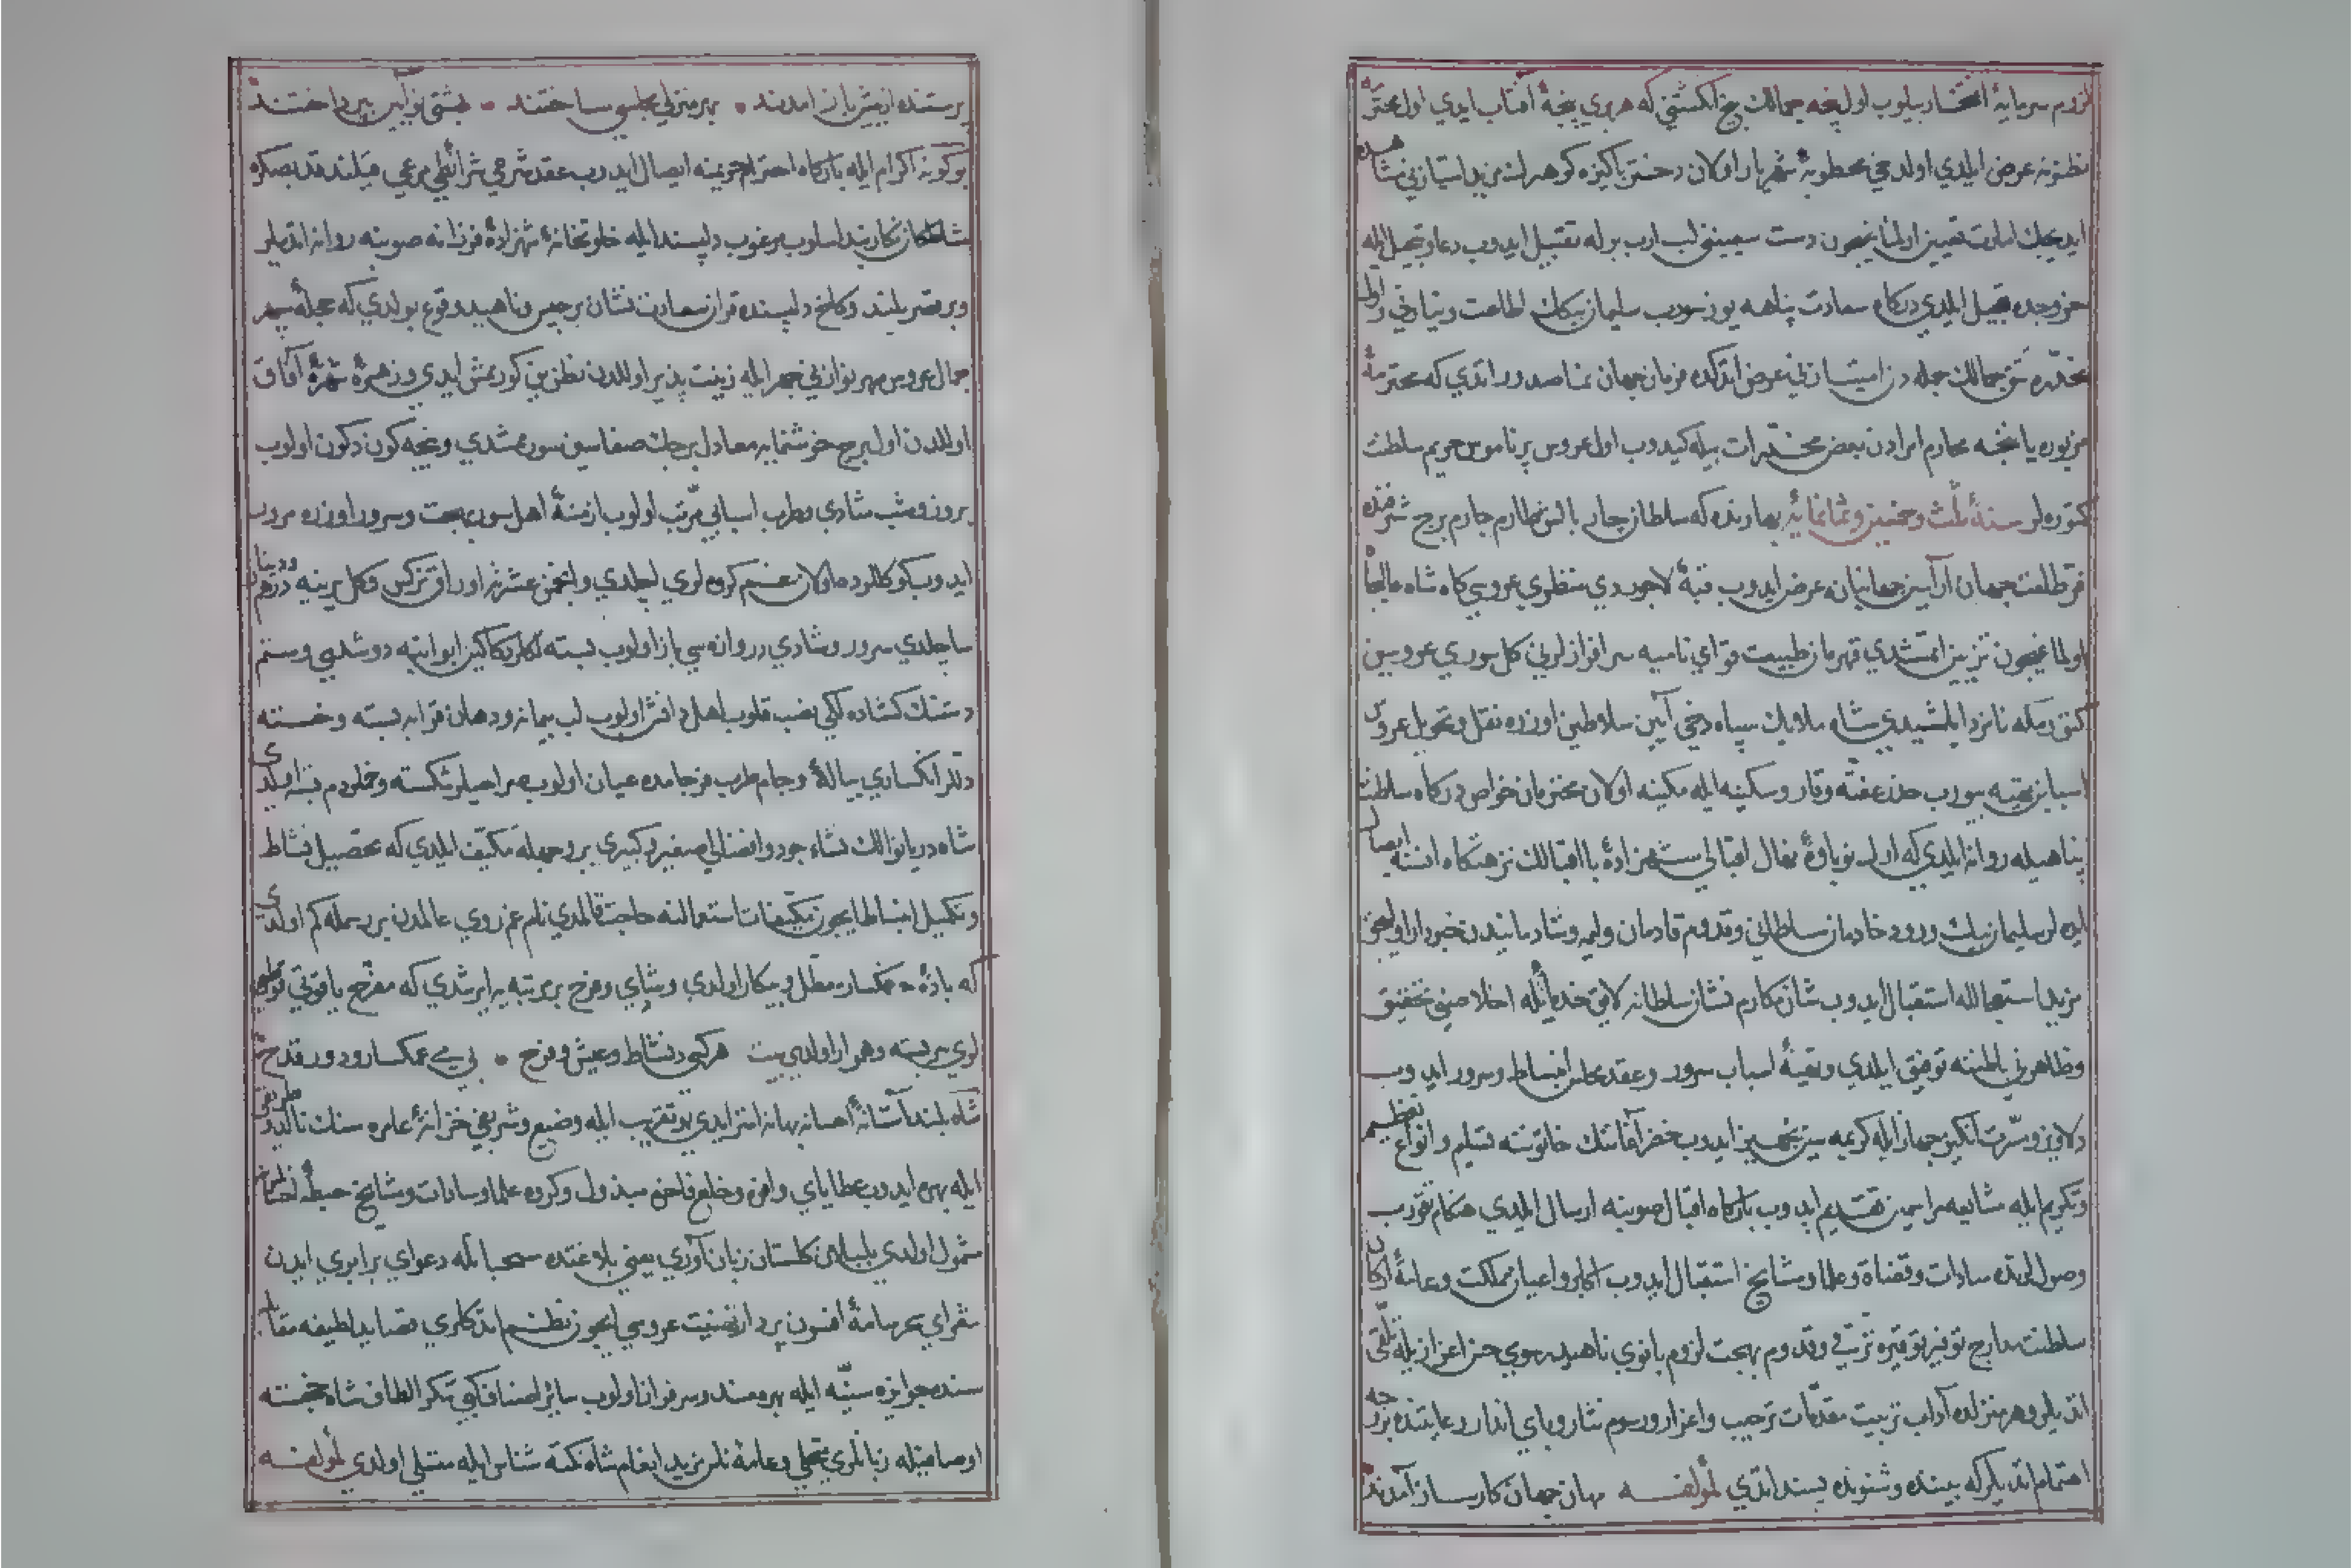 لزوم سرمایۀ افتخار بیلوب اول پنجه جمالك بنج انکشتنی که هر بری پنجۀ آفتاب ایدی اول محترمۀ
نظرنه عرض ایلدی اولدخی مخطوبۀ شهریار اولان دختر پاکیزه کوهرك مزید امتیازینی مشاهده
ایدیجك امارت تعیین اولنمغیچون دست سیمینی لب ادب برله تقبیل ایدوب دعا و تبجیل ایله
خروجده تعجیل ایلدی درکاه سعادت پناهه یوز سورب سلیمان بیکك اطاعت و نیازنی و اول
مخدّرۀ تتق جمالك جمله دن امتیازنی عرض اتدکده فرمان جهان مطاع صدور اتدی که محترمۀ
مزبوره یا نجه محارم امرادن بعض مخدرات بیله کیدوب اول عروس پرناموس حریم سلطنت
کتوره لر سنۀ ثلث وخمسین وثمانمائه بهارنده که سلطان چار بالش طارم چارم برج شرفنده
فرّ طلعت جهان آرایین جهانیانه عرض ایدوب قبۀ لاجوردی منظری عروسی کاه شاه عالیجاه
اولمغیچون تزیین اتمشدی قهرمان طبیعت قوای نامیه سرافرازلرین کل سوری عروسین
کتورمکه نامزد ایلمشیدی شاه ملایك سپاه دخی آیین سلاطین اوزره نقل و تحویل عروس
اسبابن تهیّه بیورب حلی عفّته وقار وسکینه ایله مکینه اولان محترمان خواص درکاه سلطنت
پناهیله روانه ایلدی که اول نوباوۀ نهال اقبالی شهزادۀ با اقبالك نزهتکاه انسنه ایصال
ایده لر سلیمان بیك ورود خادمان سلطانی وقدوم قادمان ولیمه وشادمانیدن خبردار اولیجق
مزید استعجالله استقبال ایدوب شان مکارم نشان سلطانه لایق خدماتله اخلاصنی تحقیق
وظاهرنی باطننه توفیق ایلدی وتهیۀ اسباب سرور وعقد مجلس انبساط وسرور ایدوب
دلاویز ومسرّت انکیز جهاز ایله کریمه سین تجهیز ایدوب خضر آقانك خاتوننه تسلیم وانواع تعظیم
وتکریم ایله مشایعه مراسمن تقدیم ایدوب بارکاه اقبال صوبینه ارسال ایلدی هنکام تقرّب
وصوللرنده سادات وقضاة وعلما ومشایخ استقبال ایدوب اکابر واعیان مملکت وعامۀ ارکان
سلطنت مدارج توفیر توقیره ترتیب وقدوم بهجت لزوم بانوی ناهید رویی حسن اعزاز برله تلقّی
اتدیلر وهر منزلده آداب تربیت مقدّمات ترحیب واعزاز ورسوم نثار وپای انداز رعایتنده بر درجه
اهتمام اتدیلر که بیننده وشنونده پسند اتدی لمؤلفه مهان جهان کارساز آمدند
پرستنده از پیش باز آمدند • بهر منزلی مجلسی ساختند • بهشتی نو آیین بپرداختند
بو کونه اکرام ایله بارکاه احترام حریمنه ایصال ایدوب عقد شرعی شرائطی مرعی قیلندقدنصکره
مشاطکان نکاربند اسلوب مرغوب دلپسند ایله خلوتخانۀ شهزادۀ فرزانه صوبنه روانه اتدیلر
وبر قصر بلند وکاخ دلپسنده قران سعادت نشان برجیس وناهید وقوع بولدی که حجلۀ سپهر
جمال عروس مهر نوازنی جهر ایله زینت پذیر اولالدن نظیرین کورمش ایدی وزهرۀ شهرۀ آفاق
اولالدن اول برج خوشنمایه معادل برجك صفاسین سورمشدی ونجه کون دکون اولوب
بر روز وشب شادی وطرب اسبابی مرتب اولوب ازمنۀ اهل سوری بهجت وسرور اوزره مرور
ایدوب کوکللرده اولان غنم کره لری لچلدی وانجمن عشرته اوراق نرکس وکل یرینه درهم ودینار
ساچلدی سرور وشادی دروازه سی باز اولوب بسته لکلر دکاکین ابوابنه دوشدی وستم
دستنك کشاده لکی نصیب قلوب اهل دانش اولوب لب پیمانه ودهان قرابه بسته وخسته
دللر انکساری پیالۀ وجام طرب فرجامده عیان اولوب صراحیلر شکسته وخملر دم بسته اولدی
شاه دریا نوالك نشاء جود وافضالی صغیر وکبیری بر وجهله مکیّف ایلدی که تحصیل نشاط
وتکمیل انبساط ایچون مکیّفات استعمالنه حاجت قالمدی نام غم روی عالمدن بر رسمله کم اولدی
که بادۀ غمکسار معطّل وبیکار اولدی وشادی وفرح بر مرتبه یه ایرشدی که مفرّح یاقوتی قوطی
لری سربسته وهوادار اولدی بیت هر کسی در نشاط وعیش وفرح • بی می غمکسار ودور قدح
شاه بلند آستانۀ احسانه بهانه استر ایدی بو تقریب ایله وضیع وشریفی خزانۀ عامره سنك تالد وطریفی
ایله بهره ایدوب عطایای وافره وخلع فاخره مبذول وکروه علما وسادات ومشایخ حیطۀ احسانه
شمول اولدی بلبلان کلستان زبان آوری یعنی بلاغتده سحبانله دعوای برابری ایدن
شعرای سحر سامۀ افسون پرداز تهنیت عروسی ایچون نظم اتدکلری قصاید لطیفه مقابله
سنده جوایزه سنیّه ایله بهره مند وسرفراز اولوب سائر اصناف کبی شکر الطاف شاه خجسته
اوصافیله زبانلری متحلّی وعامۀ ناس مزید انعام شاه نکته شناس ایله متسلّی اولدی لمؤلفه